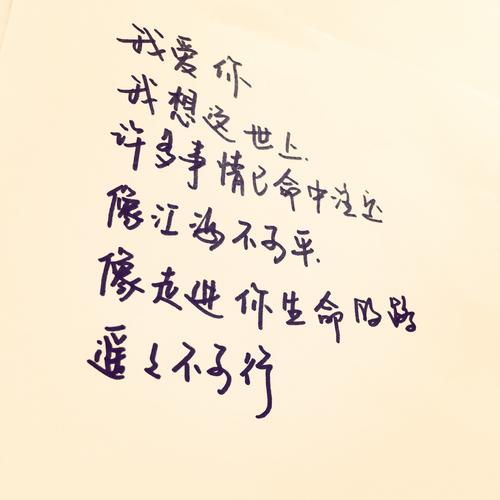 我爱你
我想这世上
许多事情已命中注定
像江海不可平
像走进你生命的路
遥遥不可行